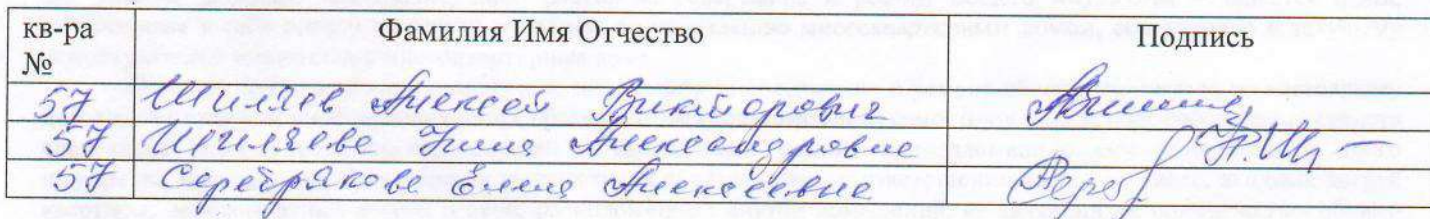 кв-ра № Фамилия Имя Отчество Подпись
57 Шиляев Алексей Викторович
57 Шиляева Нина Александровна
57 Серебрякова Елена Алексеевна